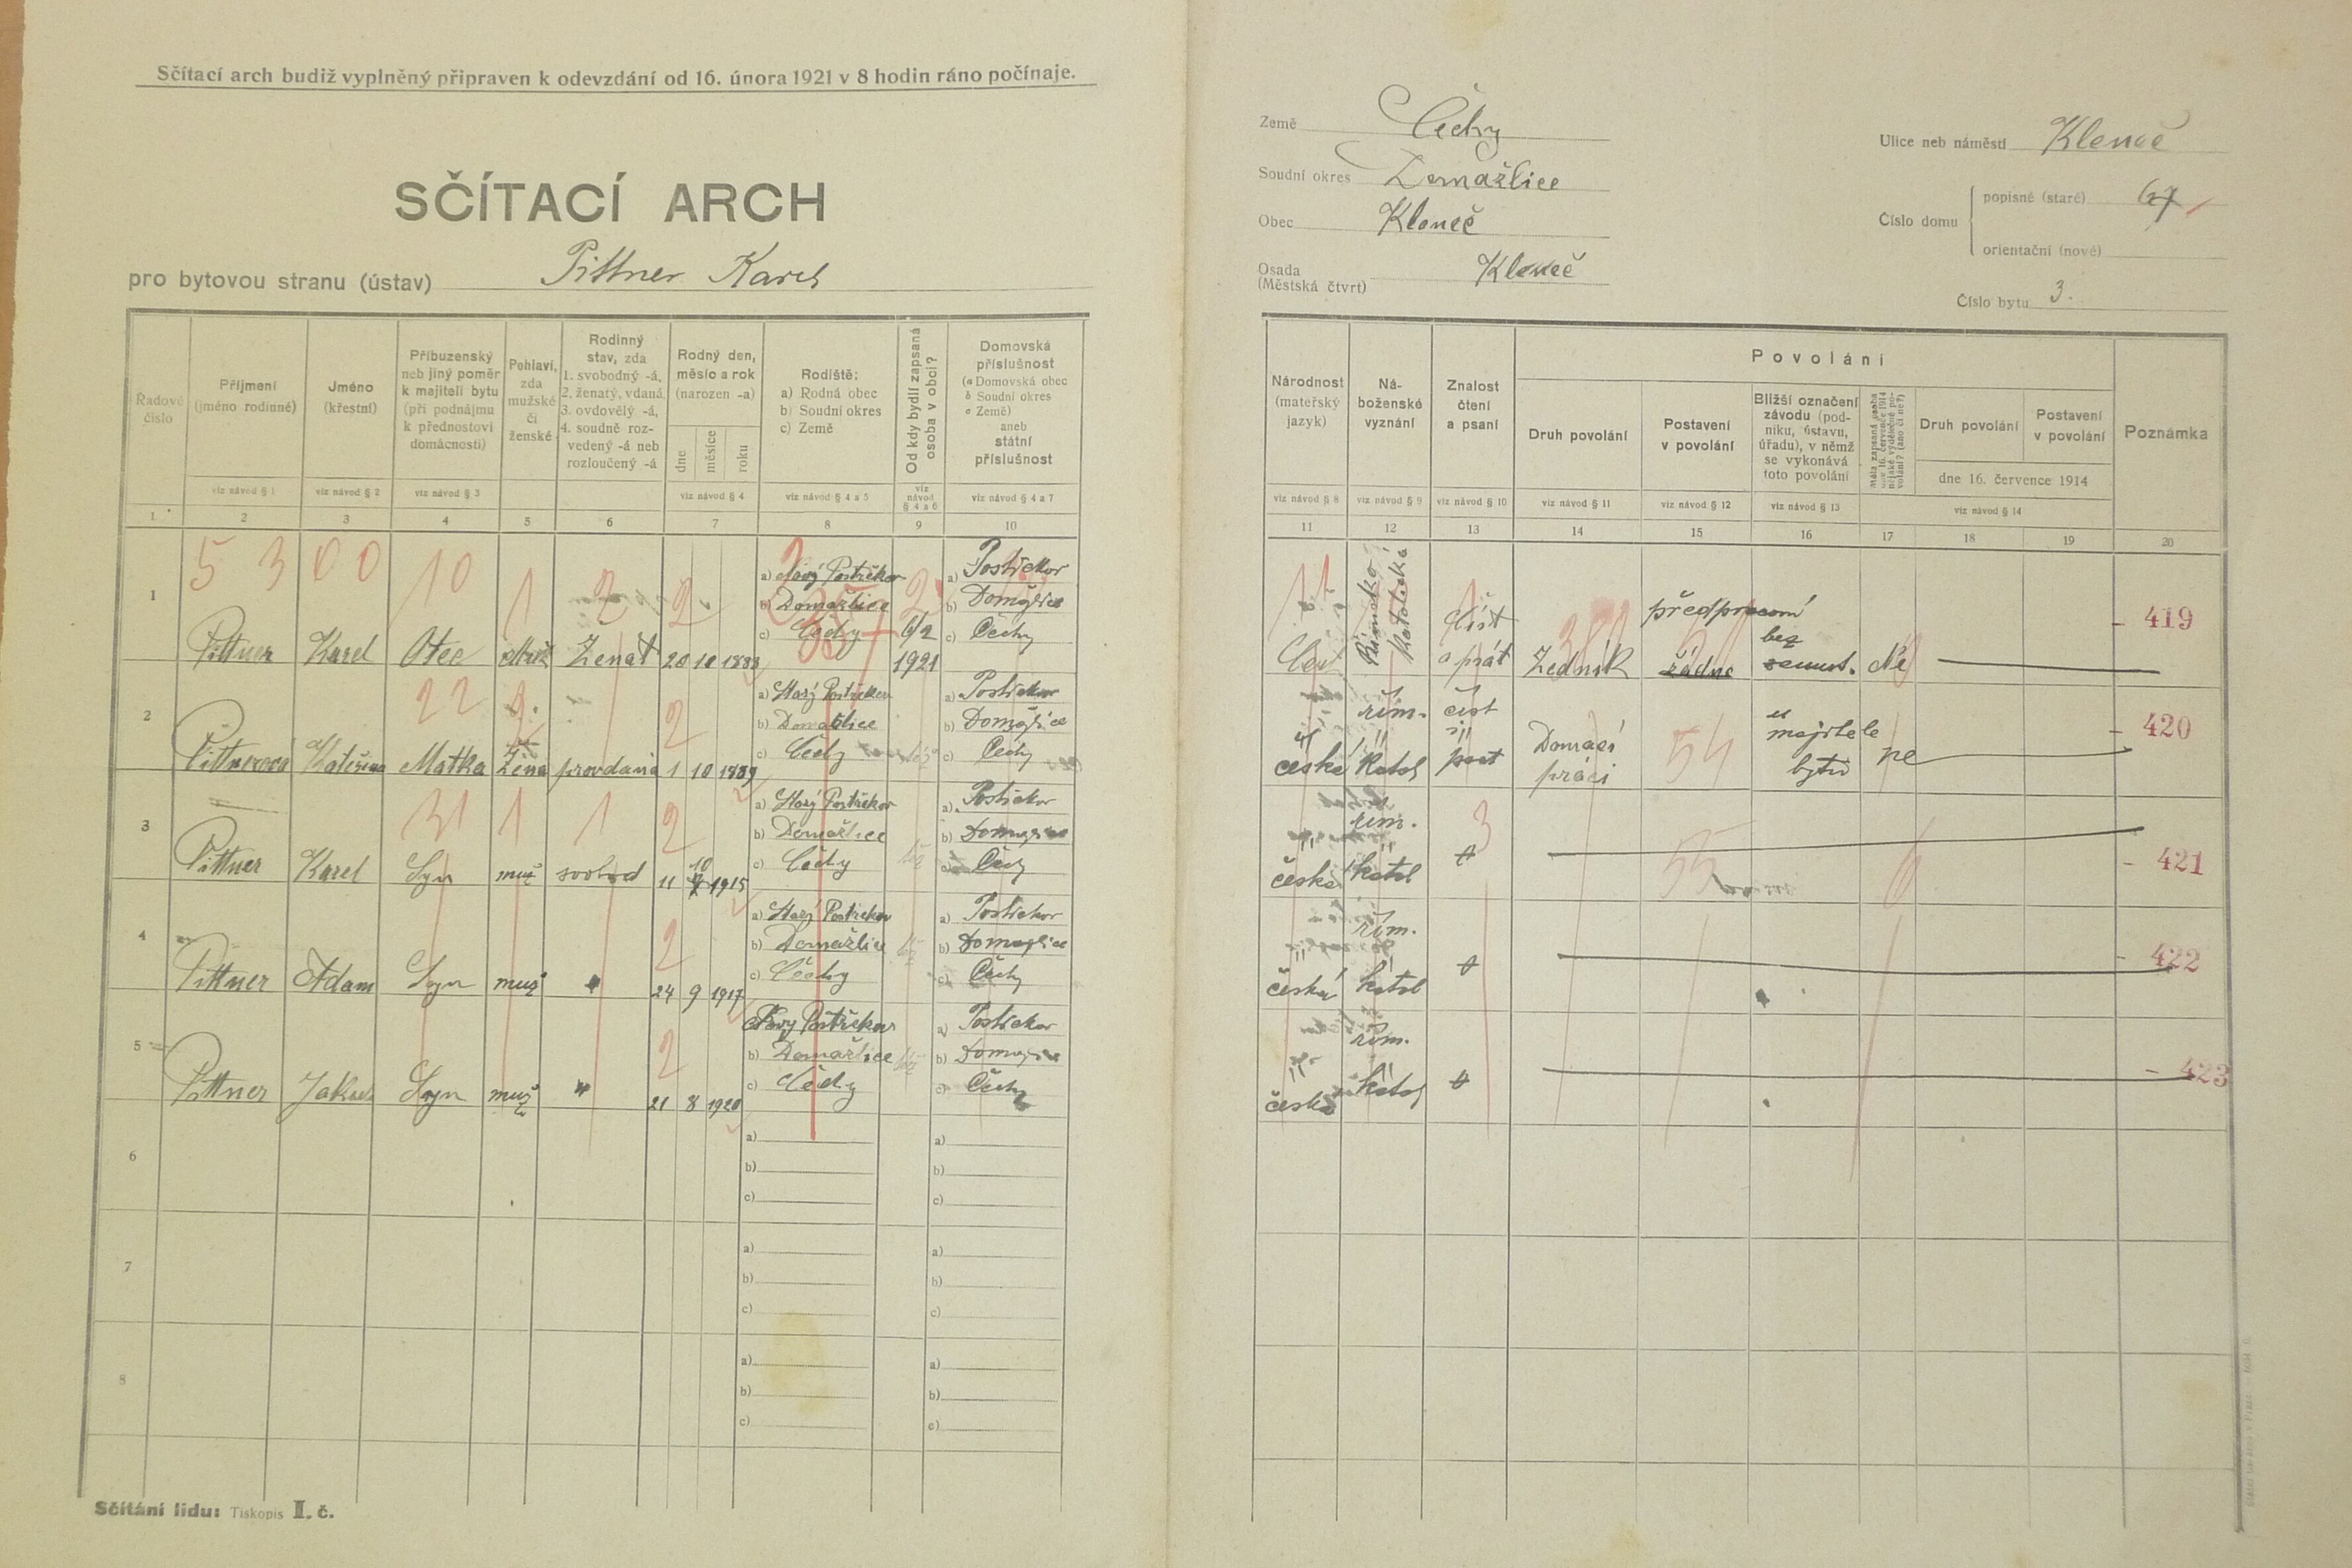 Sčítací arch budiž vyplněný připraven k odevzdání od 16. února 1921 v 8 hodin ráno počínaje.
SČÍTACÍ ARCH
pro bytovou stranu (ústav) Pittner Karel
Země Čechy
Soudní okres Domažlice
Obec Kleneč
Osada Kleneč
(Městská čtvrť)
Ulice neb náměstí Kleneč
Číslo domu
popisné (staré) 67
orientační (nové)
Číslo bytu 3.
Řadové číslo
Příjmení (jméno rodinné)
Jméno (křestní)
Příbuzenský neb jiný poměr k majiteli bytu (při podnájmu k přednostovi domácnosti)
Pohlaví, zda mužské či ženské
Rodinný stav, zda 1. svobodný -á, 2. ženatý, vdaná, 3. ovdovělý -á, 4. soudně rozvedený -á neb rozloučený -á
Rodný den, měsíc a rok (narozen -a)
dne měsíce roku
Rodiště: a) Rodná obec b) Soudní okres c) Země
Od kdy bydlí zapsaná osoba v obci?
Domovská příslušnost (a Domovská obec b Soudní okres c Země) aneb státní příslušnost
Národnost (mateřský jazyk)
Náboženské vyznání
Znalost čtení a psaní
Povolání
Druh povolání
Postavení v povolání
Bližší označení závodu (podniku, ústavu, úřadu), v němž se vykonává toto povolání
Druh povolání
Postavení v povolání
dne 16. července 1914
Poznámka
viz návod § 1 viz návod § 2 viz návod § 3 viz návod § 4 viz návod § 4 a 5 viz návod § 4 a 6 viz návod § 4 a 7
viz návod § 8 viz návod § 9 viz návod § 10 viz návod § 11 viz návod § 12 viz návod § 13 viz návod § 14
1 2 3 4 5 6 7 8 9 10
11 12 13 14 15 16 17 18 19 20
5 3 0 0 10 1 2 2
1 Pittner Karel Otec Ženat 20 10 1888
a) Nový Postřekov
b) Domažlice
c) Čechy
6/2 1921
a) Postřekov
b) Domažlice
c) Čechy
Římsko Katolická
číst a psát
Zedník
předpraconí
žádne
bez
Ne
419
22 2 2
2 Pittnerová Kateřina Matka Žena provdaná 1 10 1889
a) Starý Postřekov
b) Domažlice
c) Čechy
a) Postřekov
b) Domažlice
c) Čechy
česká
řím. katol
číst psat
Domácí práci
54
u majitele bytu
ne
420
31 1 1 2
3 Pittner Karel Syn muž svobod 11 10 1915
a) Starý Postřekov
b) Domažlice
c) Čechy
a) Postřekov
b) Domažlice
c) Čechy
česká
řím. katol
3
55
6
421
2
4 Pittner Adam Syn muž " 24 9 1917
a) Starý Postřekov
b) Domažlice
c) Čechy
a) Postřekov
b) Domažlice
c) Čechy
česká
řím. katol
422
2
5 Pittner Jakub Syn muž " 21 8 1920
Nový Postřekov
b) Domažlice
c) Čechy
a) Postřekov
b) Domažlice
c) Čechy
česká
řím. katol
423
6 a) b) c) a) b) c)
7 a) b) c) a) b) c)
8 a) b) c) a) b) c)
Sčítání lidu: Tiskopis II. č.